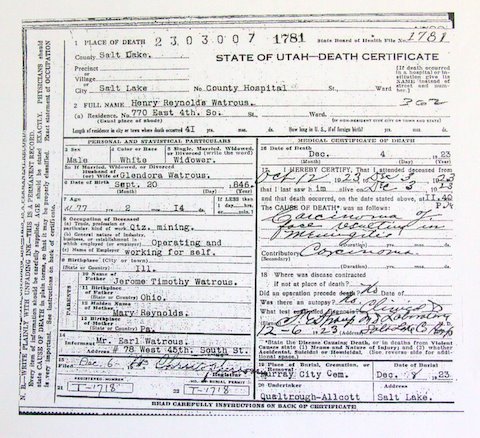 2303007 1781
State Board of Health File No. 1781
1 PLACE OF DEATH
County Salt Lake.
STATE OF UTAH—DEATH CERTIFICATE
Precinct
or
Village
or
City Salt Lake No. County Hospital St., Ward
(If death occurred in a hospital or institution give its NAME instead of street and number.)
2 FULL NAME Henry Reynolds Watrous.
(a) Residence. No. 770 East 4th. So. St., Ward.
(Usual place of abode)
Length of residence in city or town where death occurred 41 yrs. mos. ds. How long in U. S., if of foreign birth? yrs. mos. ds.
PERSONAL AND STATISTICAL PARTICULARS
3 Sex
Male
4 Color or Race
White
5 Single, Married, Widowed, or Divorced (write the word)
Widower.
If Married, Widowed, or Divorced
Husband of
Glendora Watrous.
6 Date of Birth
Sept. 20 846.
(Month) (Day) (Year)
7 Age
77 2 14
If LESS than
8 Occupation of Deceased
(a) Trade, profession or particular kind of work Qtz. mining.
(b) General nature of industry, business, or establishment in which employed (or employer) Operating and
(c) Name of Employer working for self.
9 Birthplace (City or town)
(State or Country) Ill.
PARENTS
10 Name of Father
Jerome Timothy Watrous.
11 Birthplace of Father
(State or Country) Ohio.
12 Maiden Name of Mother
Mary Reynolds.
13 Birthplace of Mother
(State or Country) Pa.
14
Informant Mr. Earl Watrous.
(Address) # 78 West 45th. South St.
15
REGISTERED NUMBER
21 T-1718
BURIAL PERMIT
22 T-1718
MEDICAL CERTIFICATE OF DEATH
16 Date of Death
Dec. 4 23
(Month) (Day) (Year)
17 I HEREBY CERTIFY, That I attended deceased
from Oct 12 1923 to Dec 3 1923
that I last saw him alive on Dec 3 1923
and that death occurred, on the date stated above, at 11.40 P.M.
The CAUSE OF DEATH* was as follows:
Carcinoma of
face resulting in
Contributory Carcinoma.
(Secondary)
18 Where was disease contracted
if not at place of death?
Did an operation precede death? No
Was there an autopsy? No
12-6, 1923
*State the Disease Causing Death, or in deaths from Violent Causes state (1) Means and Nature of Injury; and (2) whether Accidental, Suicidal or Homicidal. (See reverse side for additional space.)
19 Place of Burial, Cremation, or Removal
Murray City Cem.
Date of Burial
Dec. 8 1923
20 Undertaker
Qualtrough-Allcott
Address
Salt Lake.
READ CAREFULLY INSTRUCTIONS ON BACK OF CERTIFICATE!